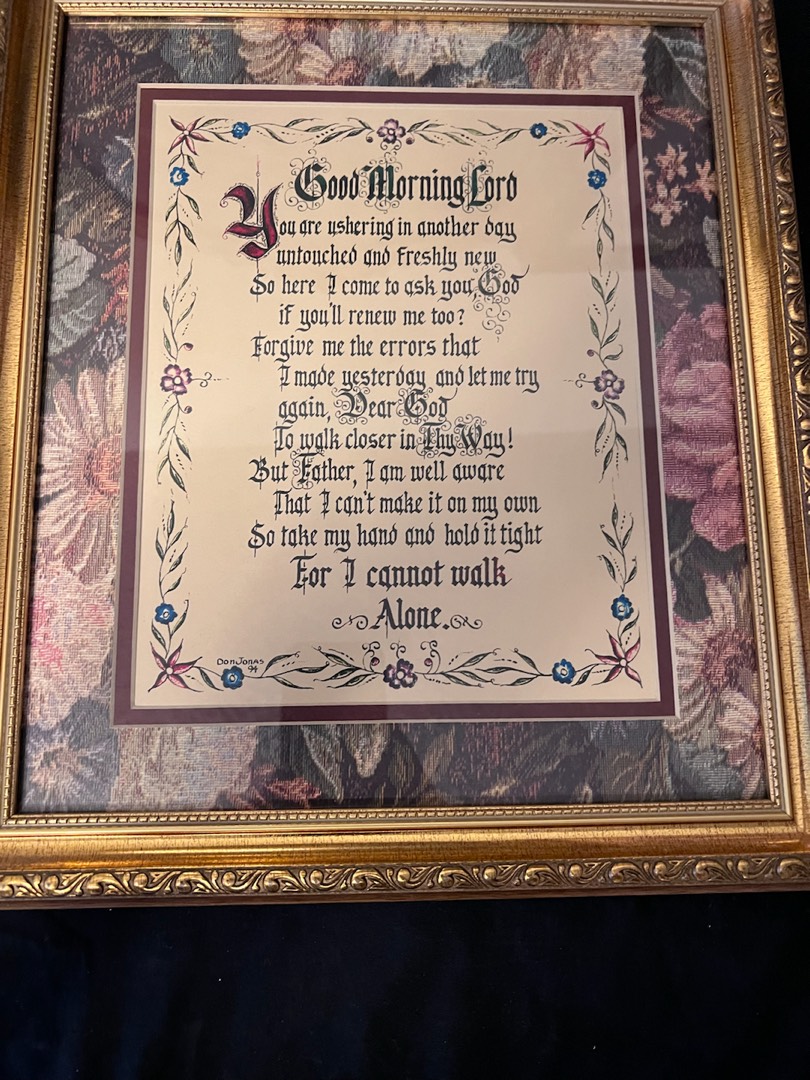 Good Morning Lord
You are ushering in another day
untouched and freshly new
So here I come to ask you, God
if you'll renew me too?
Forgive me the errors that
I made yesterday and let me try
again, Dear God
To walk closer in Thy Way!
But Father, I am well aware
That I can't make it on my own
So take my hand and hold it tight
For I cannot walk
Alone.
Don Jonas
94